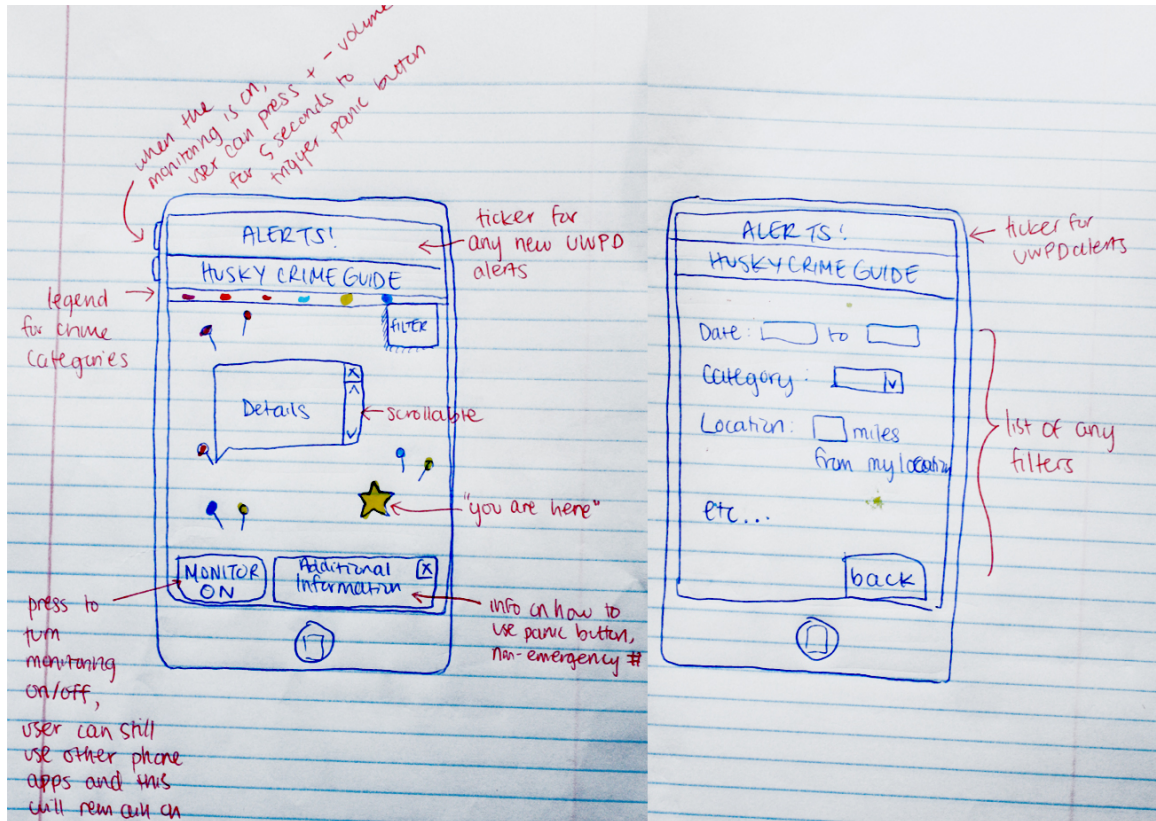 when the
monitoring is on,
user can press + - volume
for 5 seconds to
trigger panic button
ALERTS!
ticker for
any new UWPD
alerts
HUSKY CRIME GUIDE
legend
for crime
categories
FILTER
X
Details
scrollable
"you are here"
MONITOR
ON
Additional
Information
X
press to
turn
monitoring
on/off,
user can still
use other phone
apps and this
will remain on
info on how to
use panic button,
non-emergency #
ALERTS!
ticker for
UWPD alerts
HUSKY CRIME GUIDE
Date: to
Category:
Location: miles
from my location
etc...
list of any
filters
back